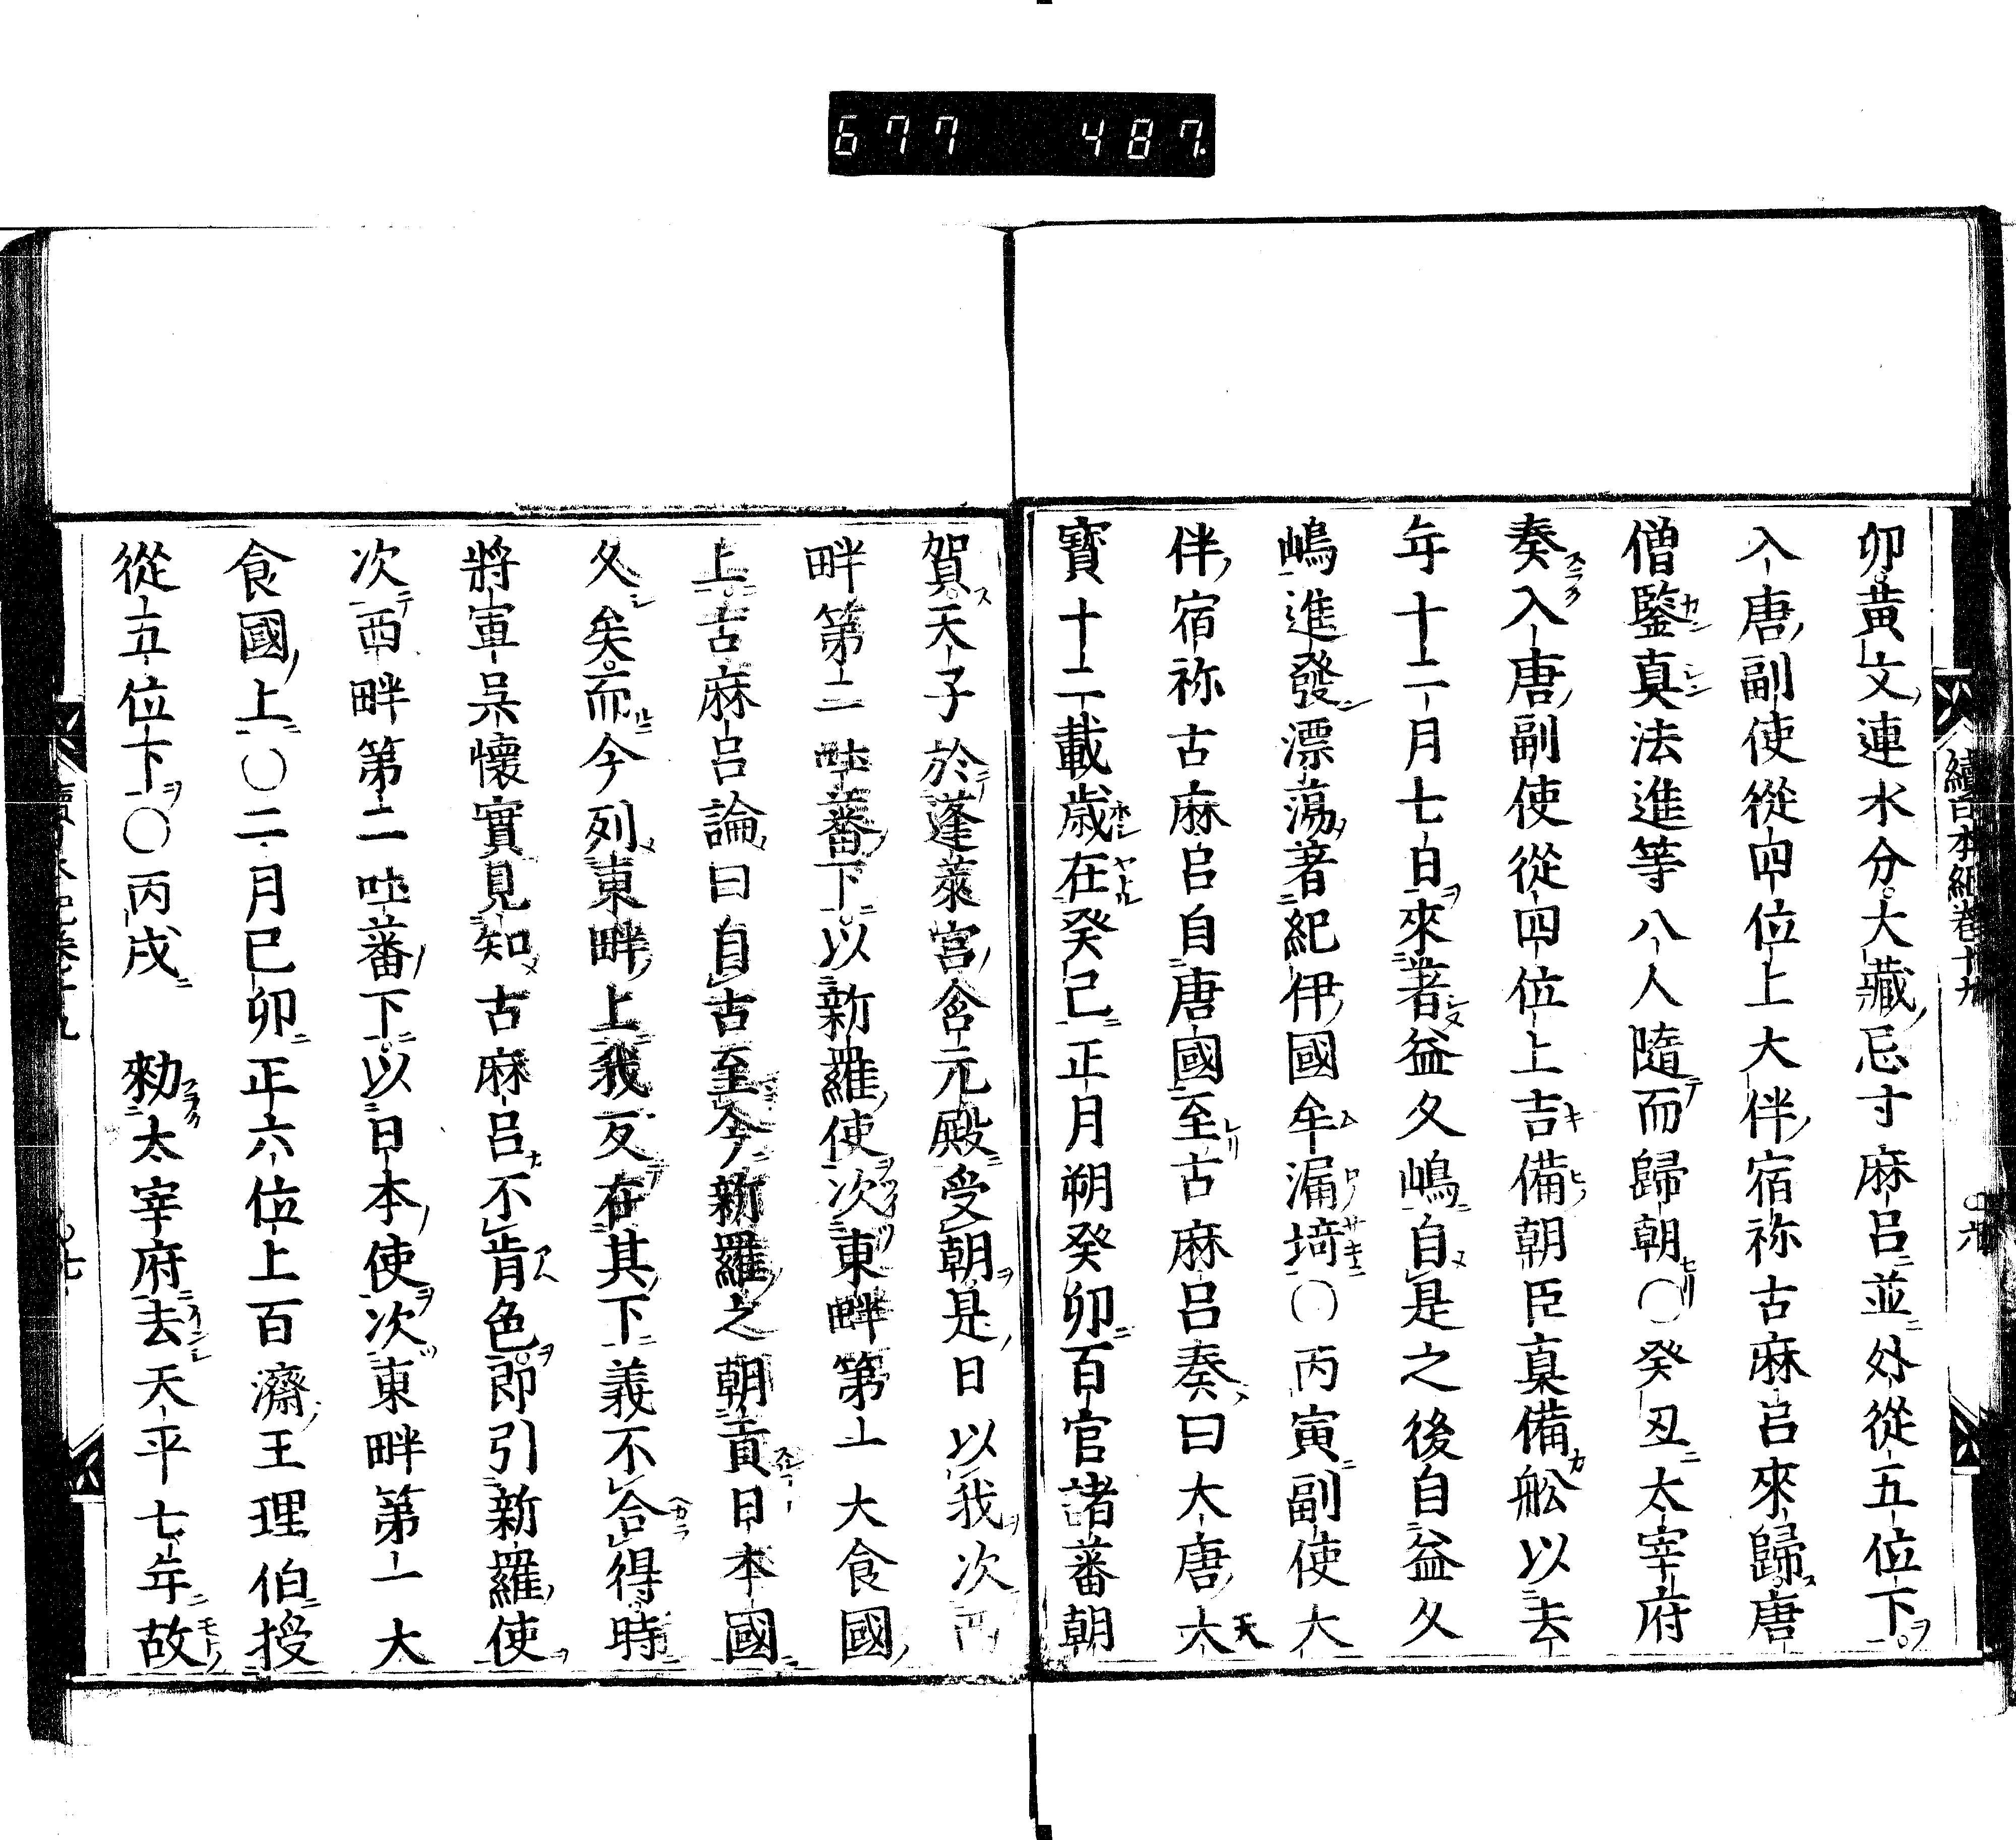 677 487.
續日本紀卷十九
卯。黃文連水分。大藏忌寸麻呂並外從五位下。
入唐副使從四位上大伴宿祢古麻呂來歸。唐
僧鑒真法進等八人隨而歸朝〇癸丑太宰府
奏入唐副使從四位上吉備朝臣真備舩以去
年十二月七日來著益久嶋自是之後自益久
嶋進發漂蕩著紀伊國牟漏埼〇丙寅副使大
伴宿祢古麻呂自唐國至古麻呂奏曰大唐天
寶十二載歳在癸巳正月朔癸卯百官諸蕃朝
賀。天子於蓬萊宮含元殿受朝是日以我次西
畔第二吐蕃下。以新羅使次東畔第一大食國
上。古麻呂論曰自古至今新羅之朝貢日本國
久矣。而今列東畔上我反在其下義不合得時
將軍吳懷實見知古麻呂不肯色。即引新羅使
次西畔第二吐蕃下。以日本使次東畔第一大
食國上〇二月己卯正六位上百濟王理伯授
從五位下〇丙戌 勑太宰府去天平七年故